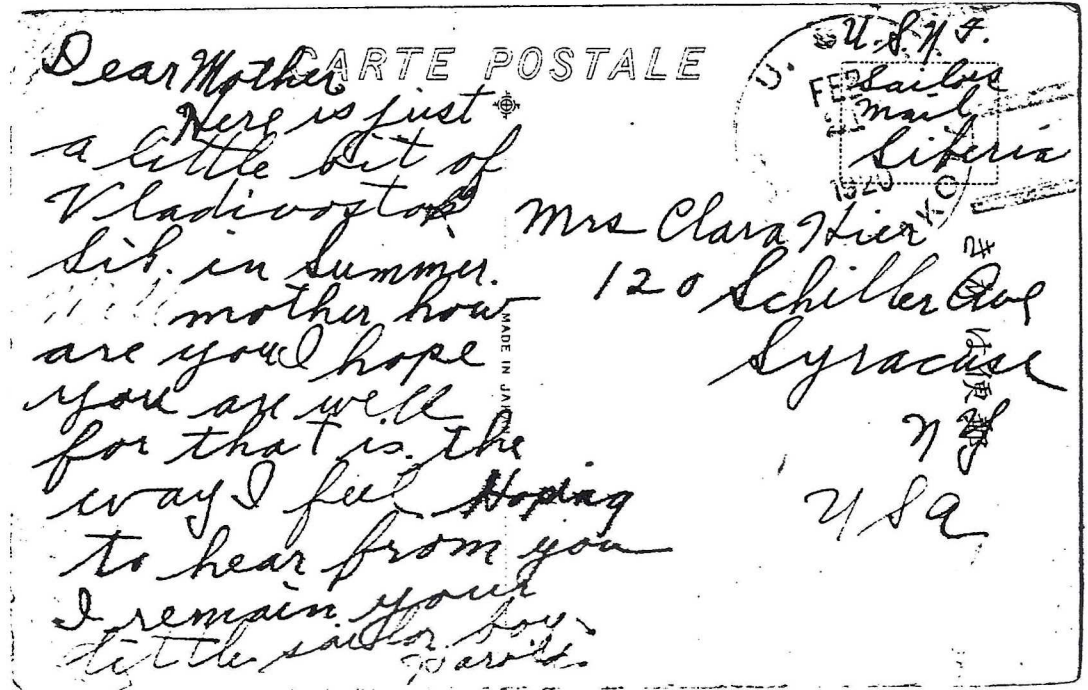 CARTE POSTALE
Dear Mother
Here is just
a little bit of
Vladivostok
Sib. in Summer.
mother how
are you I hope
you are well
for that is the
way I feel Hoping
to hear from you
I remain your
little sailor boy
Harold.
MADE IN JAPAN
U.S.N.F.
Sailors
mail
Siberia
U.
FEB
21
1920
Mrs Clara Hier
120 Schiller Ave
Syracuse
N Y
U S A
郵便はがき